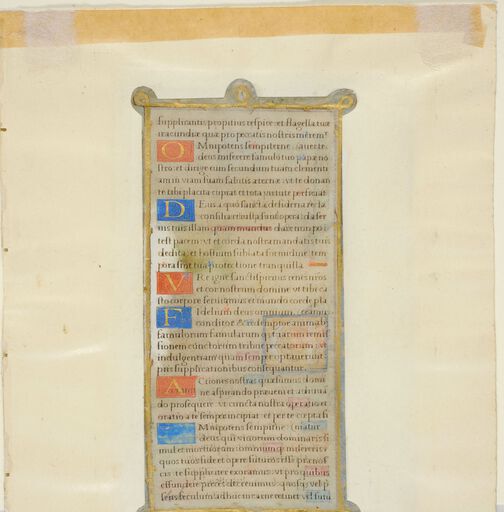 supplicantis propitius respice: et flagella tuæ
iracundiæ quæ pro peccatis nostris merem^r
OMnipotens sempiterne auerte
deus miserere famulo tuo papæ no
stro: et dirige eum secundum tuam clementi
am in viam salutis æternæ: vt te donan
te tibi placita cupiat et tota virtute perficiat
DEus a quo sancta desideria recta
consilia et iusta sunt opera: da ser
uis tuis illam quam mundus dare non po
test pacem: vt et corda nostra mandatis tuis
dedita et hostium sublata formidine tem
pora sint tua protectione tranquilla
VRe igne sancti spiritus renes nr̄os
et cor nostrum domine: vt tibi ca
sto corpore seruiamus et mundo corde pla
FIdelium deus omnium
conditor et redemptor animab⁹
famulorum famularumq; tuarum remis
sionem cunctorum tribue peccatorum: vt
indulgentiam quam semper optauerunt
piis supplicationibus consequantur.
ACtiones nostras quæsumus domi
ne aspirando præueni et adiuuā
do prosequere: vt cuncta nostra operatio et
oratio a te semper incipiat: et per te cœpta fi
OMnipotens sempiterne
deus qui viuorum dominaris si
mul et mortuorum omniumq; misereris
quos tuos fide et opere futuros esse prænos
cis: te supplices exoramus: vt pro quibus
effundere preces decreuimus: quosq; vel p̄
sens seculum adhuc in carne retinet vel futu